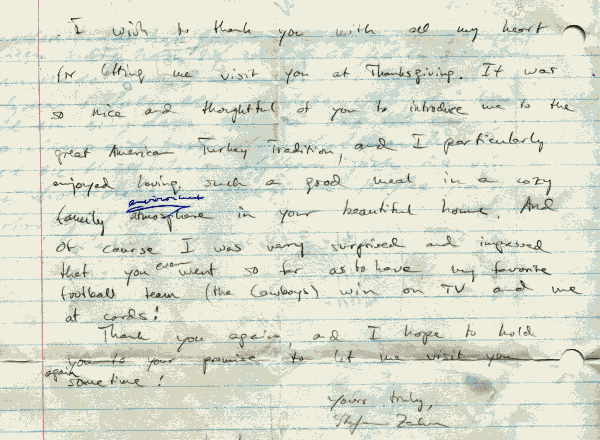 I wish to thank you with all my heart
for letting me visit you at Thanksgiving. It was
so nice and thoughtful of you to introduce me to the
great American Turkey Tradition, and I particularly
enjoyed having such a good meal in a cozy
environment
family atmosphere in your beautiful home. And
of course I was very surprised and impressed
that you even went so far as to have my favorite
football team (the Cowboys) win on TV and me
at cards!
Thank you again, and I hope to hold
you to your promise to let me visit you
again
sometime!
Yours truly,